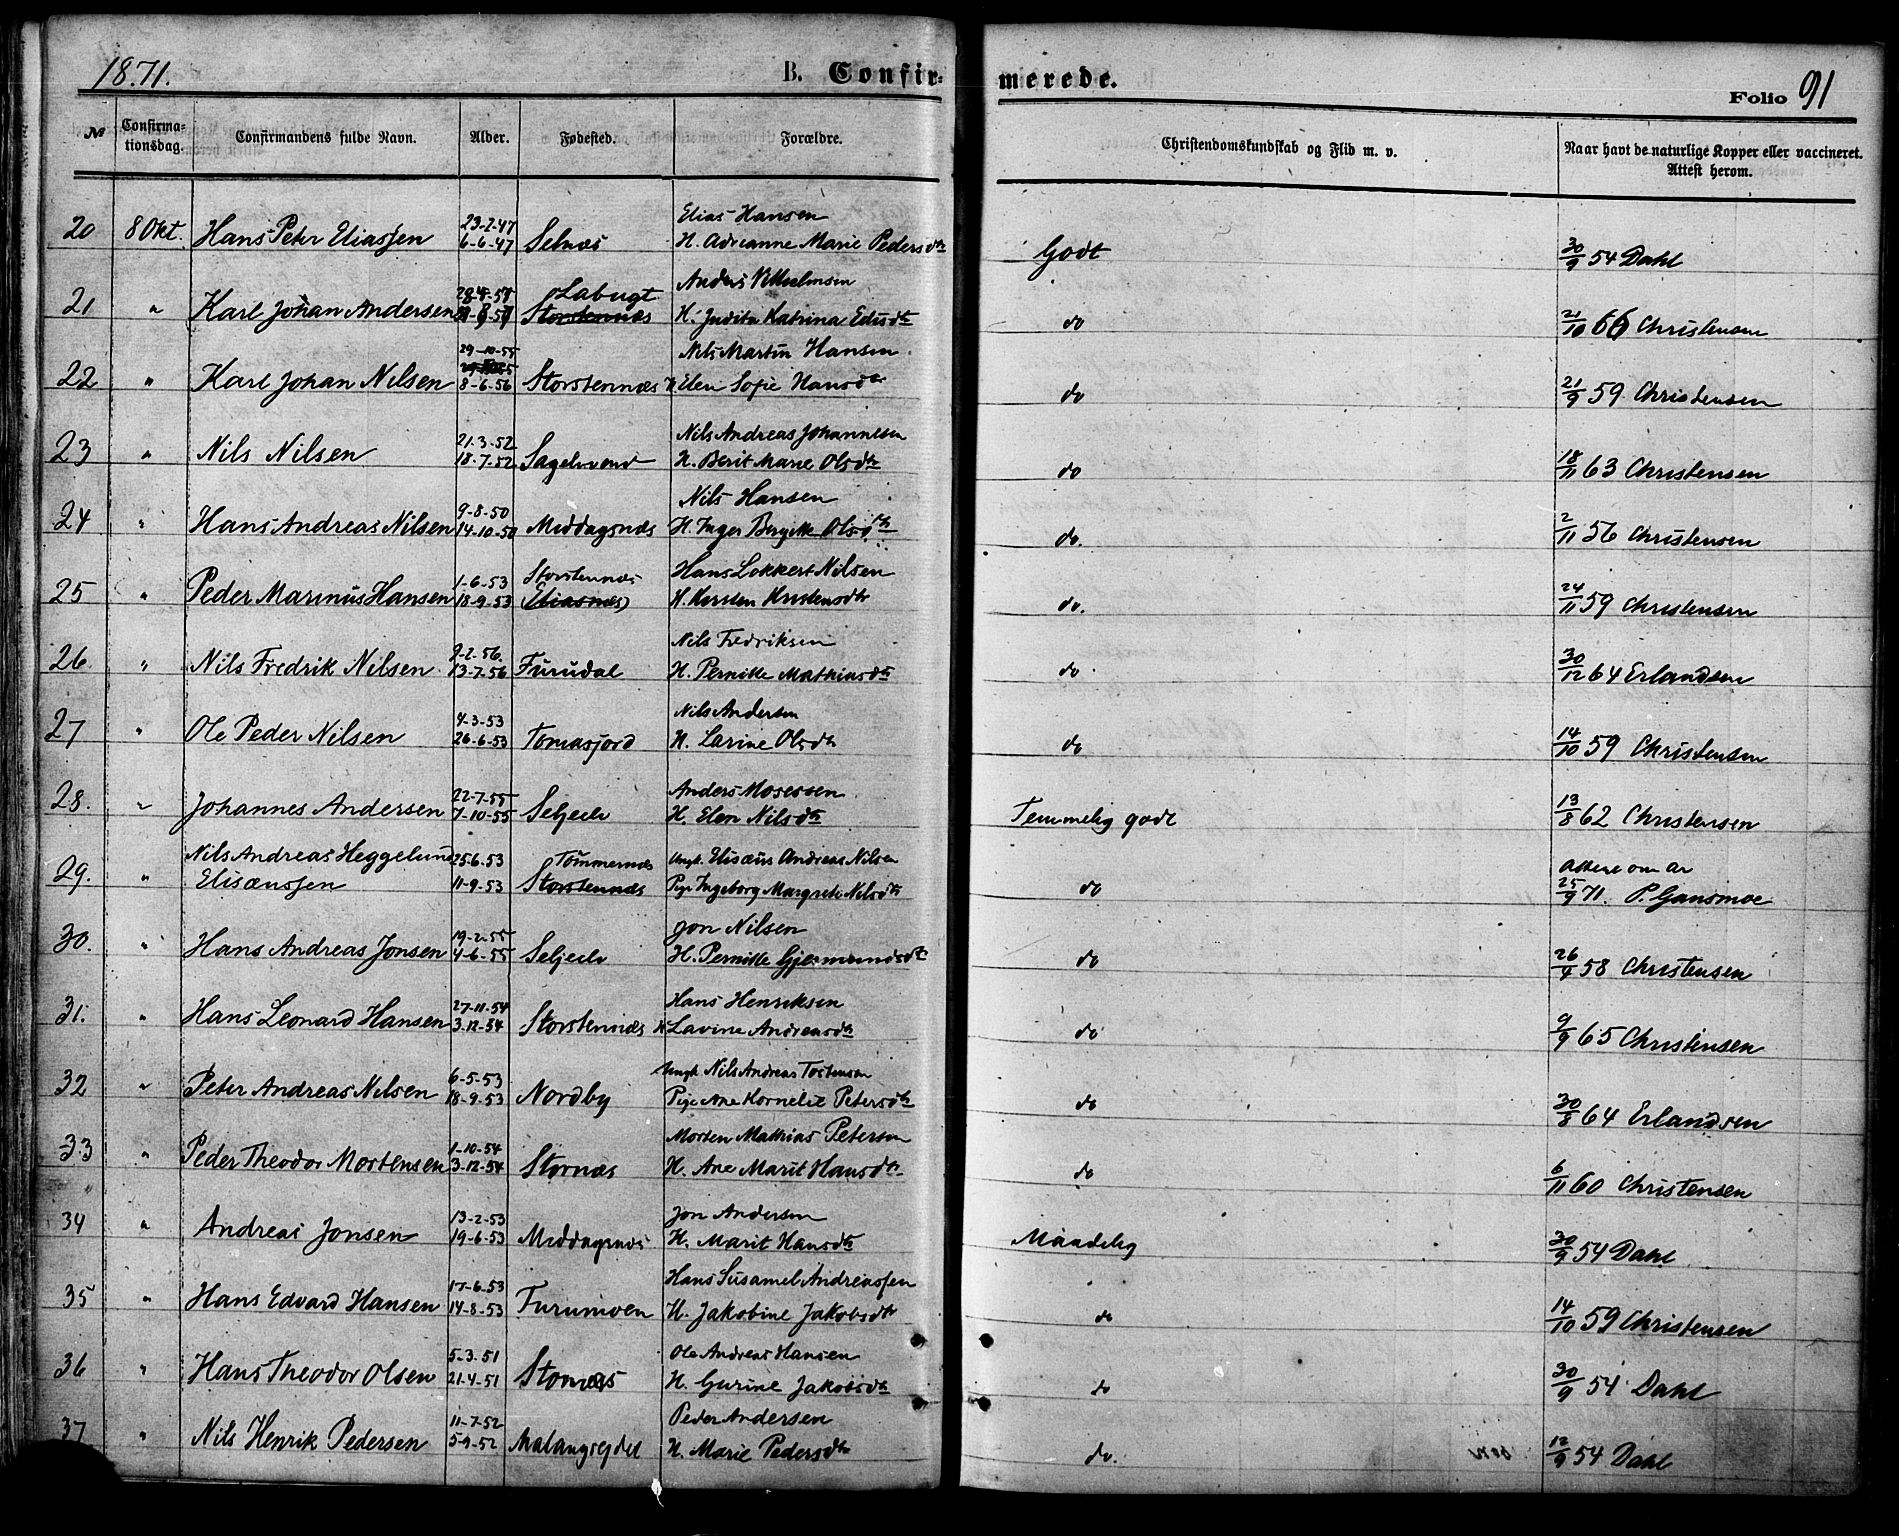 18.71. B. Confir- merede. Folio 91
№ Confirmationsdag. Confirmandens fulde Navn. Alder. Fødested. Forældre. Christendomskundskab og Flid m. v. Naar havt de naturlige Kopper eller vaccineret. Attest herom.
23-2-47 Elias Hansen
20 8 Okt. Hans Peter Eliassen 6-6-47 Selnæs H. Adreanne Marie Pedersdtr Godt 30/9 54 Dahl
Labugt Anders Vilhelmsen
21 " Karl Johan Andersen Storstennæs H. Judita Katrina do 21/10 66 Christensen
29-10-55 Nils Martin Hansen
22 " Karl Johan Nilsen 8-6-56 Storstennæs H. Elen Sofie Hansdtr do 21/9 59. Christensen
21-3-52 Nils Andreas Johannesen
23 " Nils Nilsen 18-7-52 Sagelvvand H. Berit Marie Olsdtr do 18/11 63 Christensen
9-8-50 Nils Hansen
24 " Hans Andreas Nilsen 14-10-50 Middagsnæs H. Inger Bergitte Olsdtr do. 2/11 56 Christensen
1-6-53 Storstennæs Hans Lokkert Nilsen
25 " Peder Marinus Hansen 18-9-53 (Eliasnæs) H. Kirsten Kristensdtr do. 24/11 59 Christensen
9-2-56. Nils Fredriksen
26 " Nils Fredrik Nilsen 13-7-56 Furudal H. Pernitte Mathiasdtr do 30/12 64 Erlandsen
4-3-53 Nils Andersen
27 " Ole Peder Nilsen 26-6-53 Tomasjord H. Larine Olsdtr do 14/10 59 Christensen
22-7-55 Anders Mosessen
28. " Johannes Andersen 7-10-55 Seljeelv H. Elen Nilsdtr Temmelig godt 13/8 62 Christensen
Nils Andreas Heggelund 25-6-53 Tømmernæs Ungk. Elisæus Andreas Nilsen Attest om at
29. " Elisæussen 11-9-53 Storstennæs Pige Ingeborg Margrete Nilsdtr do 25/9 71. P. Gansmoe
19-2-55 Jon Nilsen
30. " Hans Andreas Jonsen 4-6-55 Seljeelv H. Pernitte Gjermundsdtr do 26/4 58 Christensen
27-11-54 Hans Henriksen
31. " Hans Leonard Hansen 3-12-54 Storstennæs H. Lavine Andreasdtr do 9/9 65 Christensen
6-5-53 Ungk. Nils Andreas Tostensen
32 " Peter Andreas Nilsen 18-9-53 Nordby Pige Ane Kornelie Petersdtr do 30/8 64 Erlandsen
1-10-54 Morten Mathias Petersen
33 " Peder Theodor Mortensen 3-12-54 Stornæs H. Ane Marit Hansdtr do 6/11 60 Christensen
13-2-53 Jon Andersen
34 " Andreas Jonsen 19-6-53 Middagsnæs H. Marit Hansdtr Maadelig 30/9 54 Dahl
17-6-53 Hans Susamel Andreassen
35 " Hans Edvard Hansen 14-8-53 Furumoen H. Jakobine Jakobsdtr do 14/10 59 Christensen
5-3-51 Ole Andreas Hansen
36 " Hans Theodor Olsen 21-4-51 Stornæs H. Gurine Jakobsdtr do 30/9 54 Dahl
11-7-52 Peder Andersen
37 " Nils Henrik Pedersen 5-9-52 Malangsejdet H. Marie Pedersdtr do. 12/9 54 Dahl